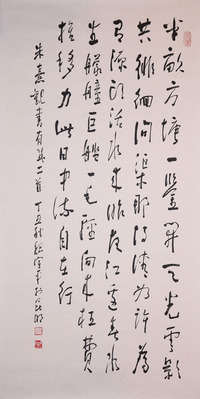 半畝方塘一鑒開天光雲影
共徘徊問渠那得清如許為
有源頭活水來昨夜江邊春水
生艨艟巨艦一毛輕向來枉費
推移力此日中流自在行
朱熹觀書有感二首 丁丑秋